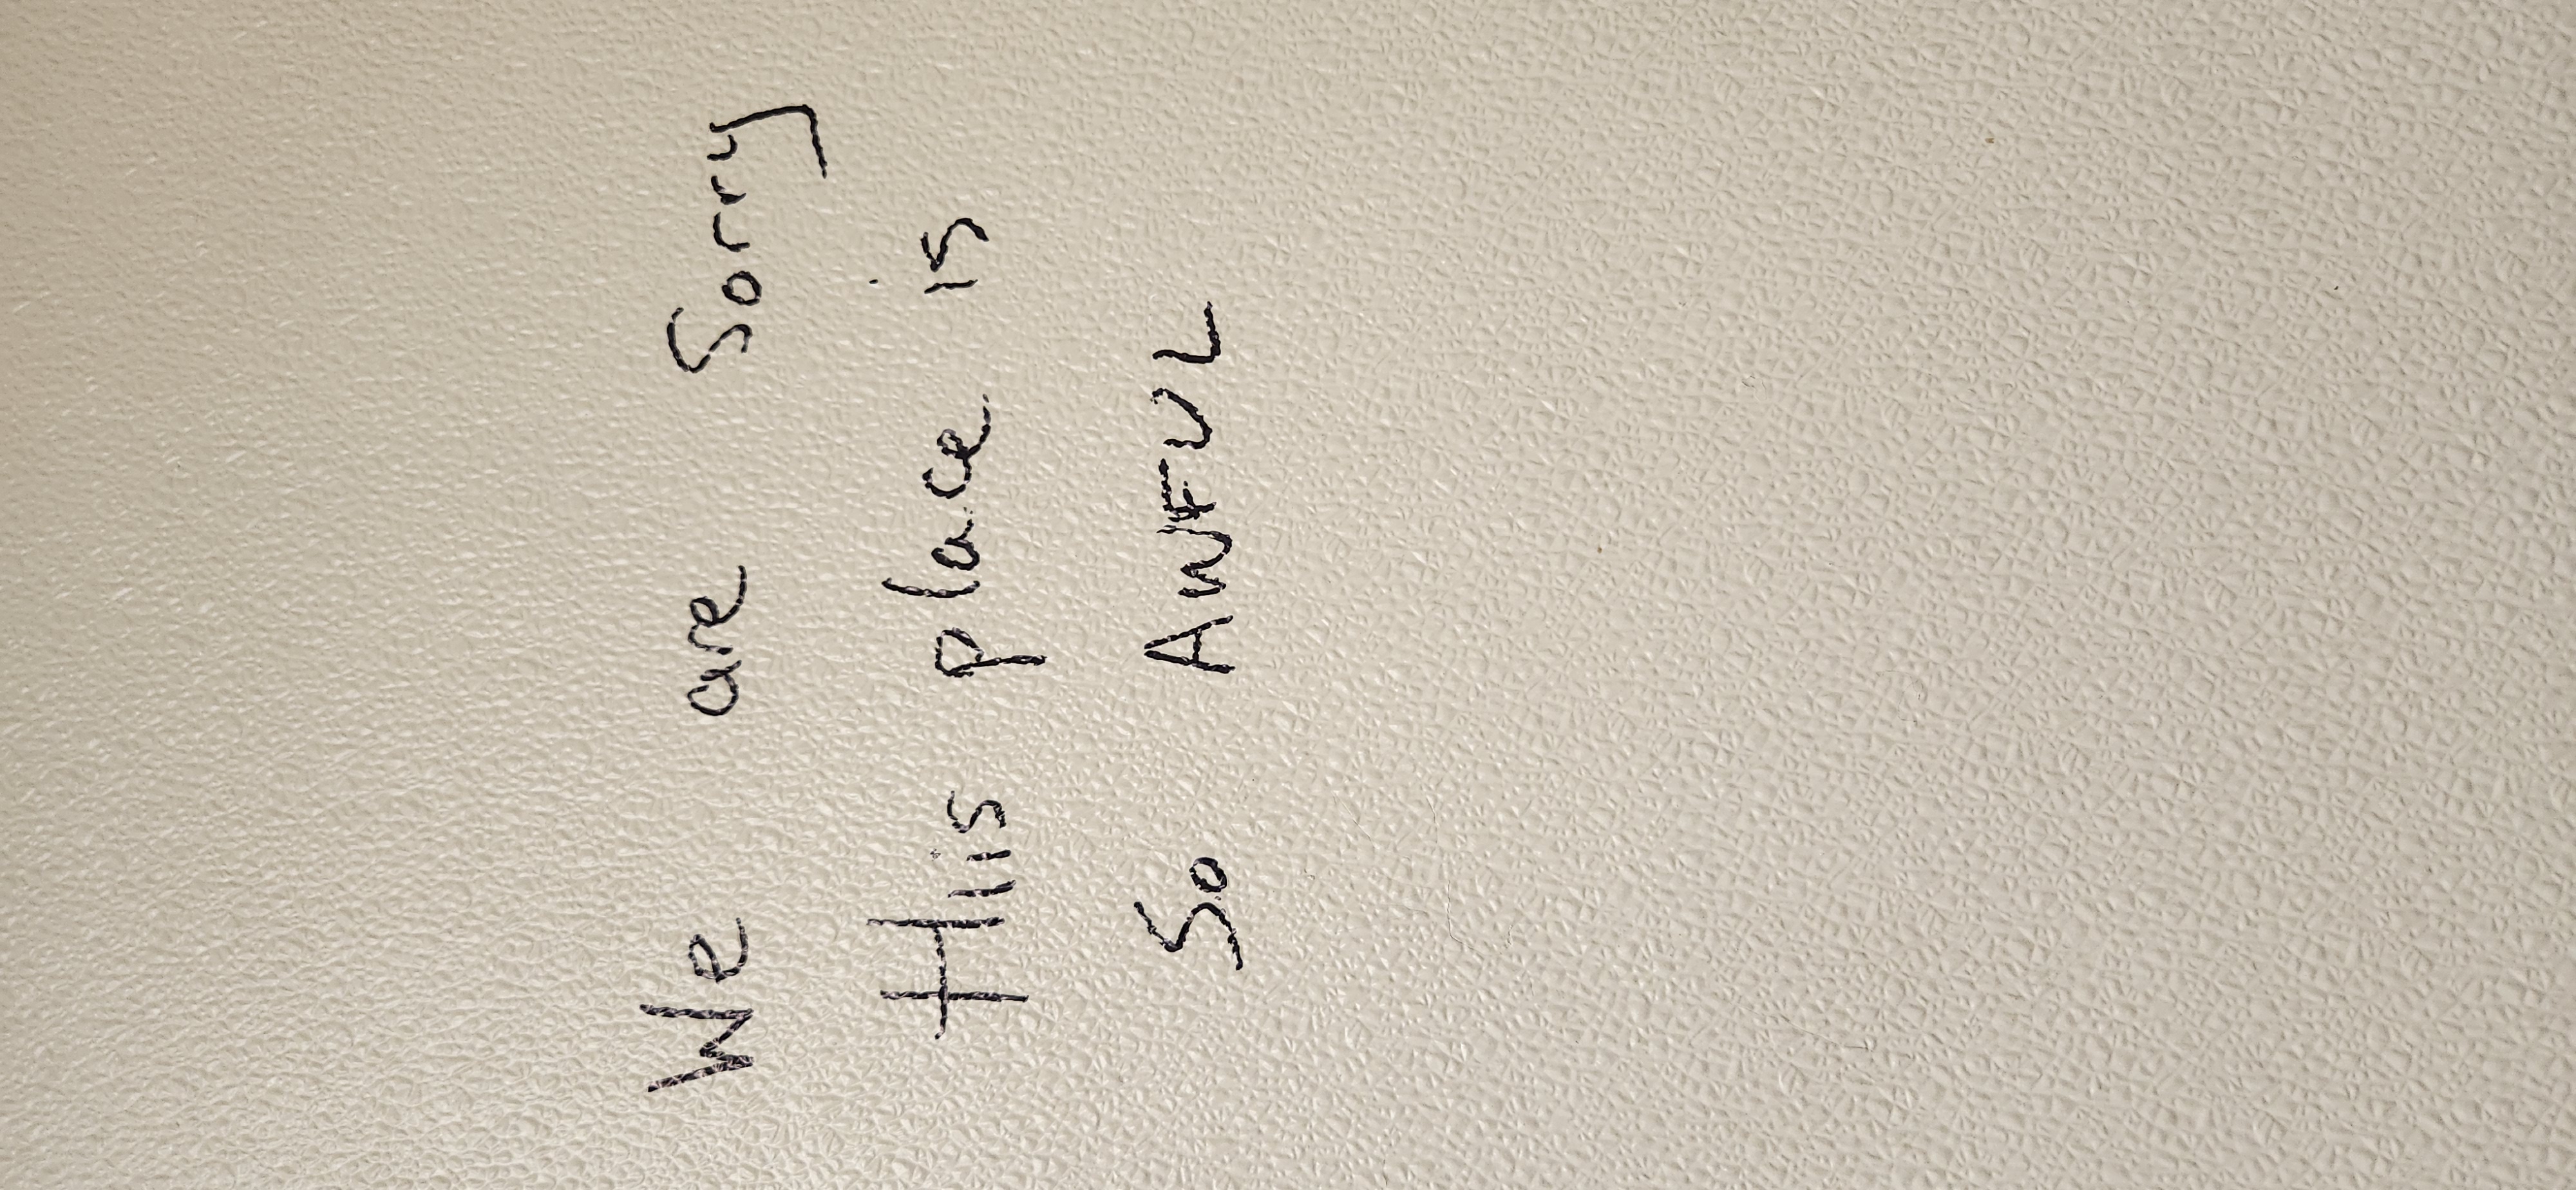 We are Sorry
this place is
So AWFUL